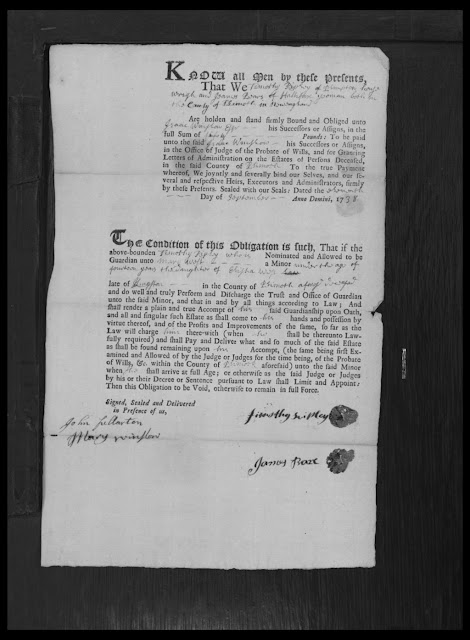 KNOW all Men by these Presents,
That We Timothy Ripley of
and James of Halifax yeoman both in
the County of Plimoth in
Are holden and stand firmly Bound and Obliged unto
Isaac Winslow Esqr his Successors or Assigns, in the
full Sum of Pounds: To be paid
unto the said Isaac Winslow his Successors or Assigns,
in the Office of Judge of the Probate of Wills, and for Granting
Letters of Administration on the Estates of Persons Deceased,
in the said County of Plimoth. To the true Payment
whereof, We jointly and severally bind our Selves, and our se-
veral and respective Heirs, Executors and Administrators, firmly
by these Presents. Sealed with our Seals: Dated the
Day of September Anno Domini, 1738
THe Condition of this Obligation is such, That if the
above-bounden Timothy Ripley who is Nominated and Allowed to be
Guardian unto Mary a Minor under the age of
fourteen years the Daughter of Elisha
late of in the County of Plimoth
and do well and truly Perform and Discharge the Trust and Office of Guardian
unto the said Minor, and that in and by all things according to Law; And
shall render a plain and true Accompt of his said Guardianship upon Oath,
and all and singular such Estate as shall come to his hands and possession by
virtue thereof, and of the Profits and Improvements of the same, so far as the
Law will charge him there-with (when he shall be thereunto Law-
fully required) and shall Pay and Deliver what and so much of the said Estate
as shall be found remaining upon his Accompt, (the same being first Ex-
amined and Allowed of by the Judge or Judges for the time being, of the Probate
of Wills, &c within the County of Plimoth aforesaid) unto the said Minor
when she shall arrive at full Age; or otherwise as the said Judge or Judges
by his or their Decree or Sentence pursuant to Law shall Limit and Appoint:
Then this Obligation to be Void, otherwise to remain in full Force.
Signed, Sealed and Delivered
in Presence of us,
John Fullarton
Mary Winslow
Timothy Ripley
James